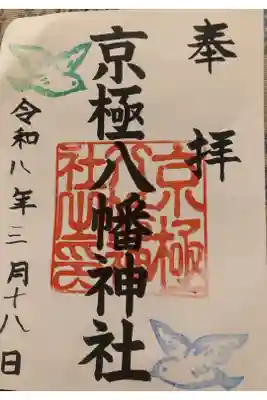 奉拝
京極八幡神社
京極八幡神社之印
令和八年三月十八日